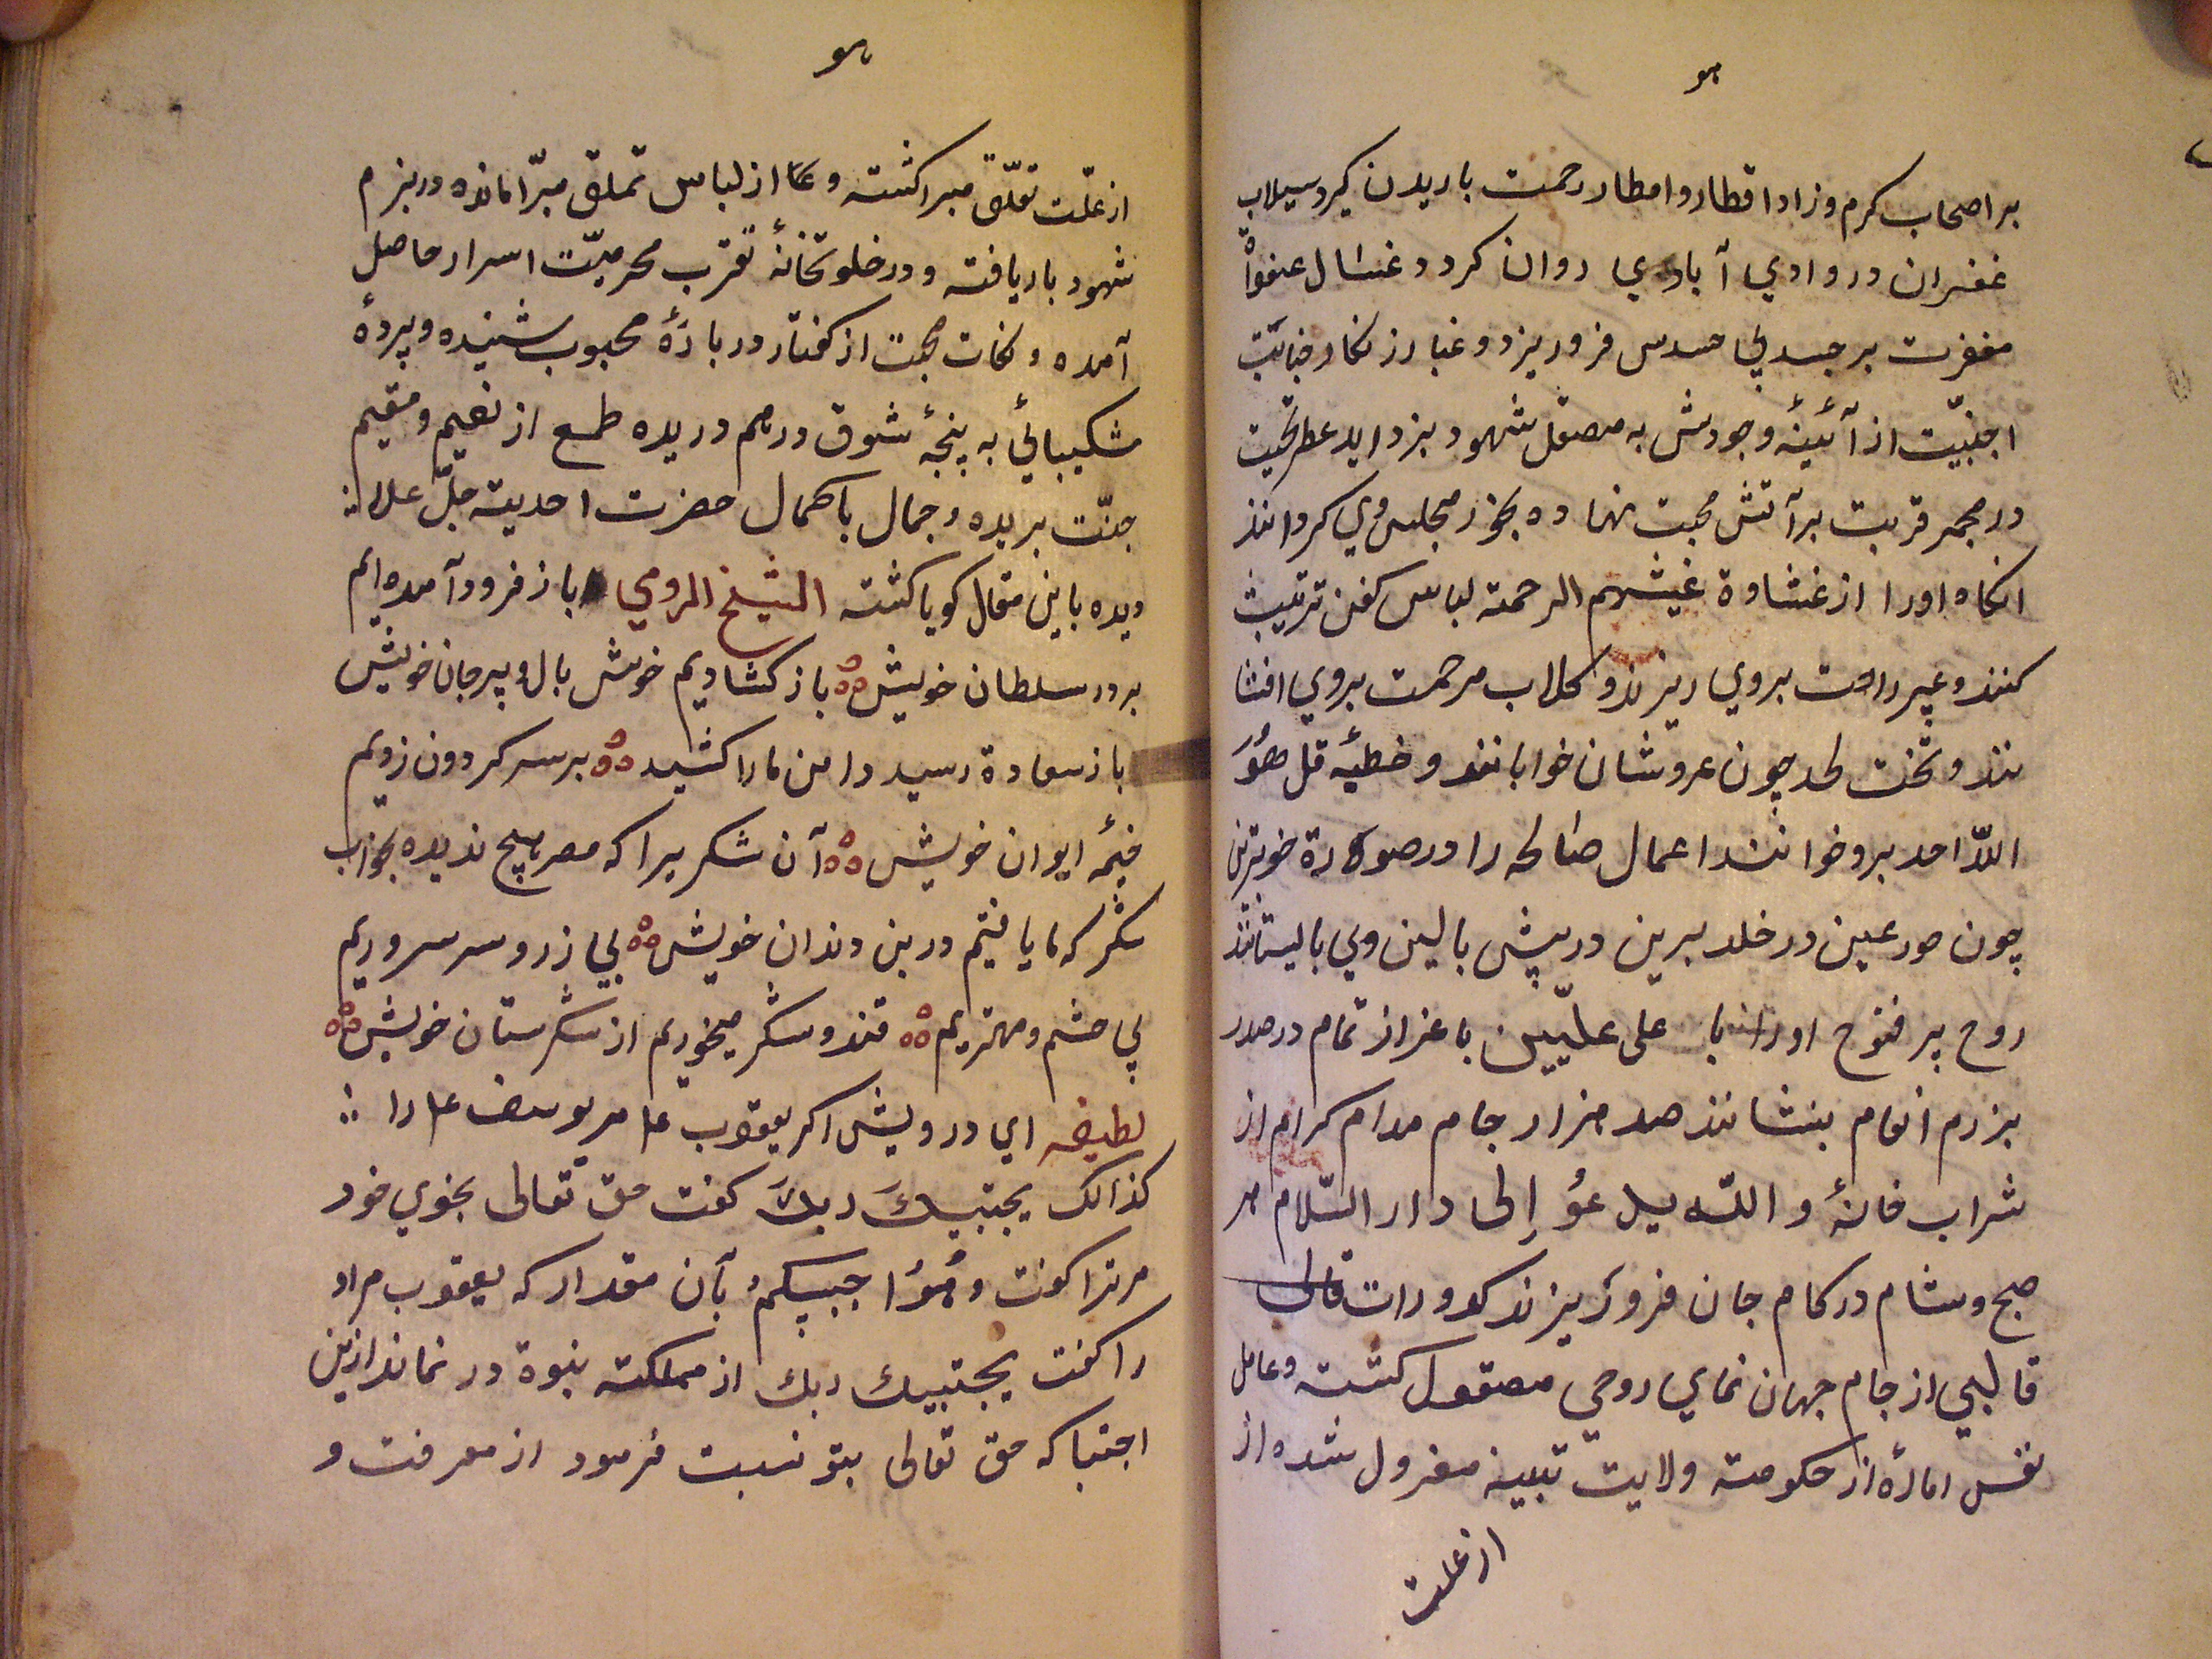 هو
بر اصحاب كرم وزاد اقطار و امطار رحمت باريدن كيرد سيلاب
غفران در وادي آبادي روان كردد غسال عفوا
مغفرت بر جسد بي حسدس فرو ريزد و غبار زنكار
اجنبيّت از آئينهٔ وجودش به مصقل شهود بزدايد عطر تحيت
در مجمر قربت بر آتش محبت نهاده بخور مجلس وي كردانند
انكاه اورا از غشاوة غيشهم الرحمة لباس كفن ترتيب
كنند و عبير رافت بروي ريزند و كلاب مرحمت بروي افشا
نند و تخت لحد چون عروشان خوابانند و خطبه قل هُوَ
اللّٰه احد برو خوانند اعمال صالحه را در صورة خوبترين
چون حور عين در خلد برين در پيش بالين وي باليستانند
روح پر فتوح اورا با على علّيين باعزاز تمام در صدر
بزم انعام بنشانند صد هزار جام مدام كرام از
شراب خانهٔ و اللّه يدعوُ إلى دار السّلام هر
صبح و شام در كام جان فرو ريزند كدورات
قالبي از جام جهان نماي روحي مصقول كشته و عامل
نفس اماره از حكومت ولايت تبعيه معزول شده از
از علت
هو
از علّت تعلّق مبرا كشته و از لباس تملق مبرّا مانده در بزم
شهود بار يافته و در خلوتخانهٔ تقرب محرميّت اسرار حاصل
آمده و نكات محبت از كفتار دربارهٔ محبوب شنيده و پردهٔ
شكيبائي به پنجهٔ شوق درهم دريده طمع از نعيم و مقيم
جنّت بريده و جمال باكمال حضرت احديت جلّ علا
ديده باين مقال كويا كشته الشيخ الرومي باز فرود آمده ايم
بر در سلطان خويش باز كشاديم خوش بال و پر جان خويش
باز سعادة رسيد دامن مارا كشيد بر سر كردون زديم
خيمهٔ ايوان خويش آن شكريرا كه مصر هيچ نديده بخواب
شكر كه ما يافتيم در بن دندان خويش بي زر و سر سروريم
بي حشم و مهتريم قند و شكر ميخوريم از شكرستان خويش
لطيفه اي درويش اكر يعقوب عا مر يوسف عا را
كذالك يجتبيكَ ربكَ كفت حق تعالى بخوي خود
مر ترا كفت و هُوَ اجتبيكمْ بآن مقدار كه يعقوب مراو
را كفت يجتبيك ربك از مملكت نبوة در نماند ازين
اجتبا كه حق تعالى بتو نسبت فرمود از معرفت و